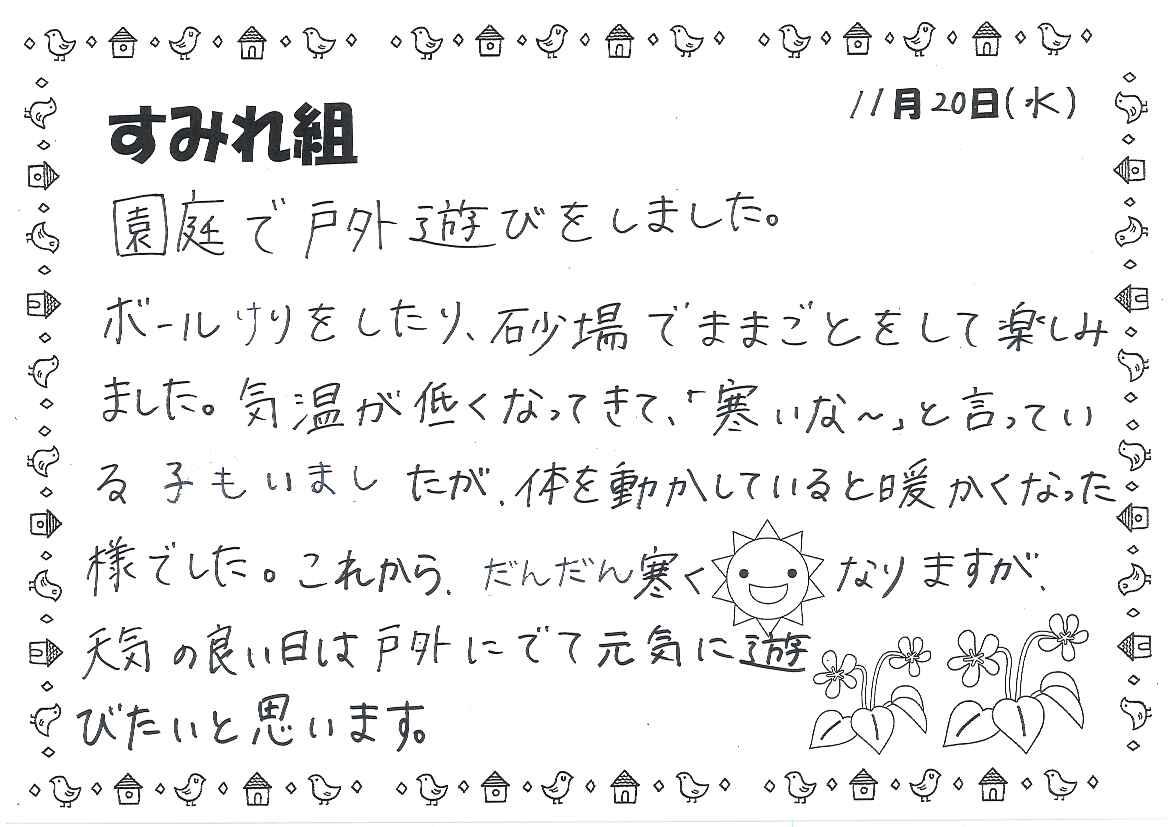 11月20日(水)
すみれ組
園庭で戸外遊びをしました。
ボールけりをしたり、砂場でままごとをして楽しみ
ました。気温が低くなってきて、「寒いな～」と言ってい
る子もいましたが、体を動かしていると暖かくなった
様でした。これから、だんだん寒くなりますが、
天気の良い日は戸外にでて元気に遊
びたいと思います。